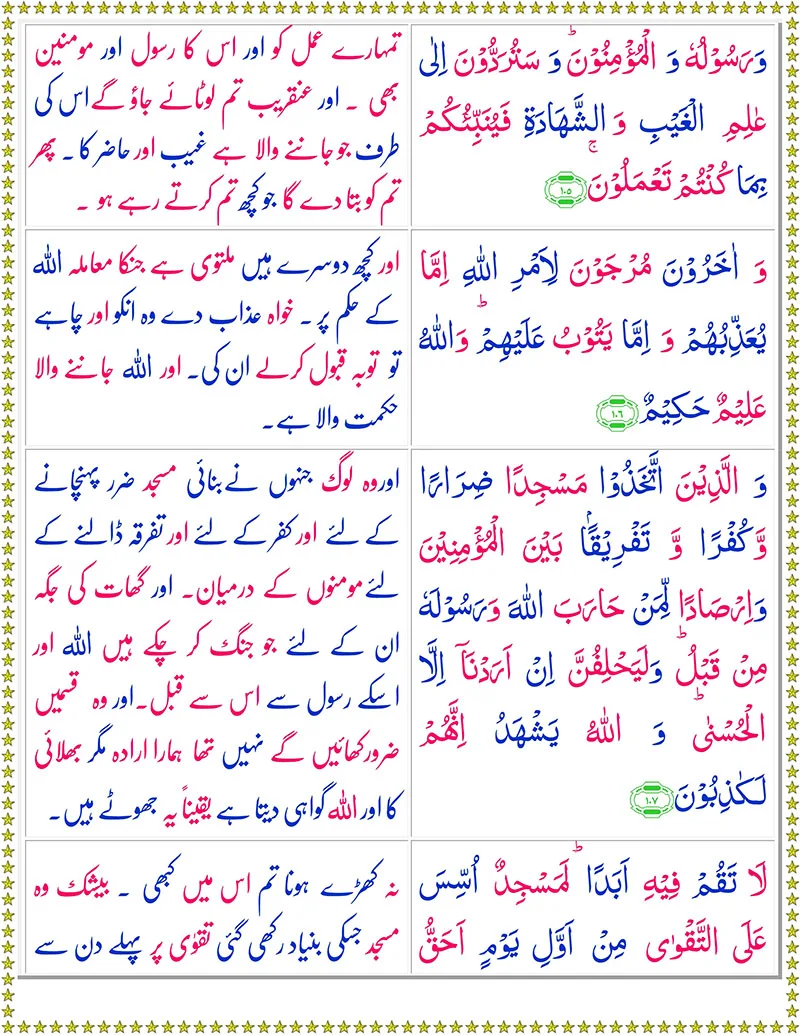 وَرَسُوْلُهٗ وَ الْمُؤْمِنُوْنَؕ وَ سَتُرَدُّوْنَ اِلٰى
عٰلِمِ الْغَیْبِ وَ الشَّهَادَةِ فَیُنَبِّئُكُمْ
بِمَا كُنْتُمْ تَعْمَلُوْنَۚ ۝۱۰۵
تمہارے عمل کو اور اس کا رسول اور مومنین
بھی ۔ اور عنقریب تم لوٹائے جاؤ گے اس کی
طرف جو جاننے والا ہے غیب اور حاضر کا ۔ پھر
تم کو بتا دے گا جو کچھ تم کرتے رہے ہو ۔
وَ اٰخَرُوْنَ مُرْجَوْنَ لِاَمْرِ اللّٰهِ اِمَّا
یُعَذِّبُهُمْ وَ اِمَّا یَتُوْبُ عَلَیْهِمْؕ وَاللّٰهُ
عَلِیْمٌ حَكِیْمٌ ۝۱۰۶
اور کچھ دوسرے ہیں ملتوی ہے جنکا معاملہ اللہ
کے حکم پر ۔ خواہ عذاب دے وہ انکو اور چاہے
تو توبہ قبول کرلے ان کی۔ اور اللہ جاننے والا
حکمت والا ہے۔
وَ الَّذِیْنَ اتَّخَذُوْا مَسْجِدًا ضِرَارًا
وَّكُفْرًا وَّ تَفْرِیْقًۢا بَیْنَ الْمُؤْمِنِیْنَ
وَاِرْصَادًا لِّمَنْ حَارَبَ اللّٰهَ وَرَسُوْلَهٗ
مِنْ قَبْلُؕ وَلَیَحْلِفُنَّ اِنْ اَرَدْنَاۤ اِلَّا
الْحُسْنٰىؕ وَ اللّٰهُ یَشْهَدُ اِنَّهُمْ
لَكٰذِبُوْنَ ۝۱۰۷
اوروہ لوگ جنہوں نے بنائی مسجد ضرر پہنچانے
کے لئے اور کفر کے لئے اور تفرقہ ڈالنے کے
لئے مومنوں کے درمیان۔ اور گھات کی جگہ
ان کے لئے جو جنگ کر چکے ہیں اللہ اور
اسکے رسول سے اس سے قبل۔اور وہ قسمیں
ضرورکھائیں گے نہیں تھا ہمارا ارادہ مگر بھلائی
کا اور اللہ گواہی دیتا ہے یقیناً یہ جھوٹے ہیں۔
لَا تَقُمْ فِیْهِ اَبَدًاؕ لَمَسْجِدٌ اُسِّسَ
عَلَى التَّقْوٰى مِنْ اَوَّلِ یَوْمٍ اَحَقُّ
نہ کھڑے ہونا تم اس میں کبھی ۔ بیشک وہ
مسجد جسکی بنیاد رکھی گئی تقوٰی پر پہلے دن سے